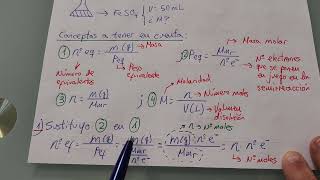 → FeSO₄ { V: 50 mL
M
Conceptos a tener en cuenta:
① nº eq = m(g) / Peq → Masa
↓ Número de equivalentes
↳ Peso equivalente
② Peq = Mar / nº e⁻ → Masa molar
↳ Nº electrones que se ponen en juego en la semirreacción
③ n = m(g) / Mar ; ④ M = n / V(L) → Número moles
Molaridad
↳ Volumen disolución
1) Sustituyo ② en ①
nº eq = m(g) / Peq = m(g) / (Mar / nº e⁻) = m(g) · nº e⁻ / Mar = n · nº e⁻
→ n → Nº moles
↳ Nº moles